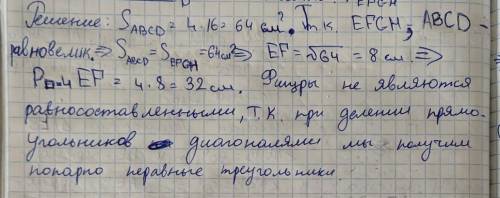 Решение: S ABCD = 4·16 = 64 см². Т.к. EFGH, ABCD -
равновелик. => S ABCD = S EFGH = 64 см² => EF = √64 = 8 см =>
P□ = 4 EF = 4·8 = 32 см. Фигуры не являются
равносоставленными, т.к. при делении прямо-
угольников диагоналями мы получим
попарно неравные треугольники.